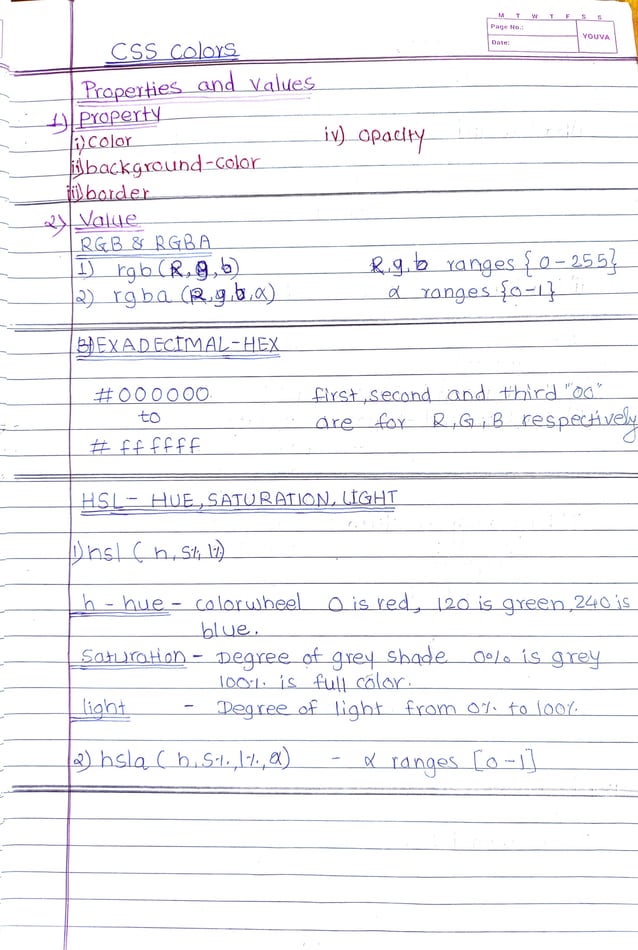 M T W T F S S
Page No.:
Date:
YOUVA
CSS Colors
Properties and values
1) Property
i) color
iv) opacity
ii) background-color
iii) border
2) Value
RGB & RGBA
1) rgb (R,g,b)
R,g,b ranges {0-255}
2) rgba (R,g,b,α)
α ranges {0-1}
b) HEXADECIMAL-HEX
#000000
first, second and third "00"
to
are for R,G,B respectively
# ffffff
HSL - HUE, SATURATION, LIGHT
1) hsl (h, s%, l%)
h - hue - colorwheel 0 is red, 120 is green, 240 is
blue.
Saturation - Degree of grey shade 0% is grey
100% is full color.
light - Degree of light from 0% to 100%
2) hsla (h, s%, l%, α) - α ranges [0-1]